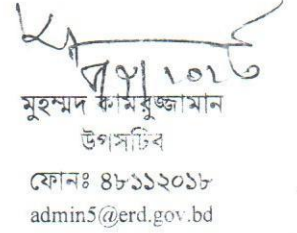 মুহম্মদ কামরুজ্জামান
উপসচিব
ফোনঃ ৪৮১১২০১৮
admin5@erd.gov.bd